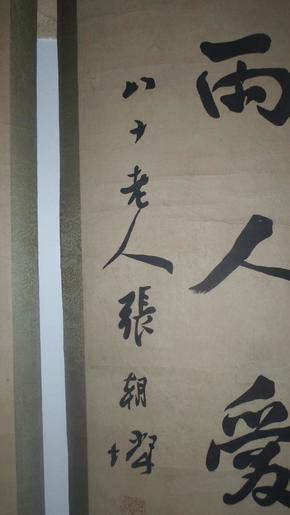 雨人愛
八十老人張朝墉